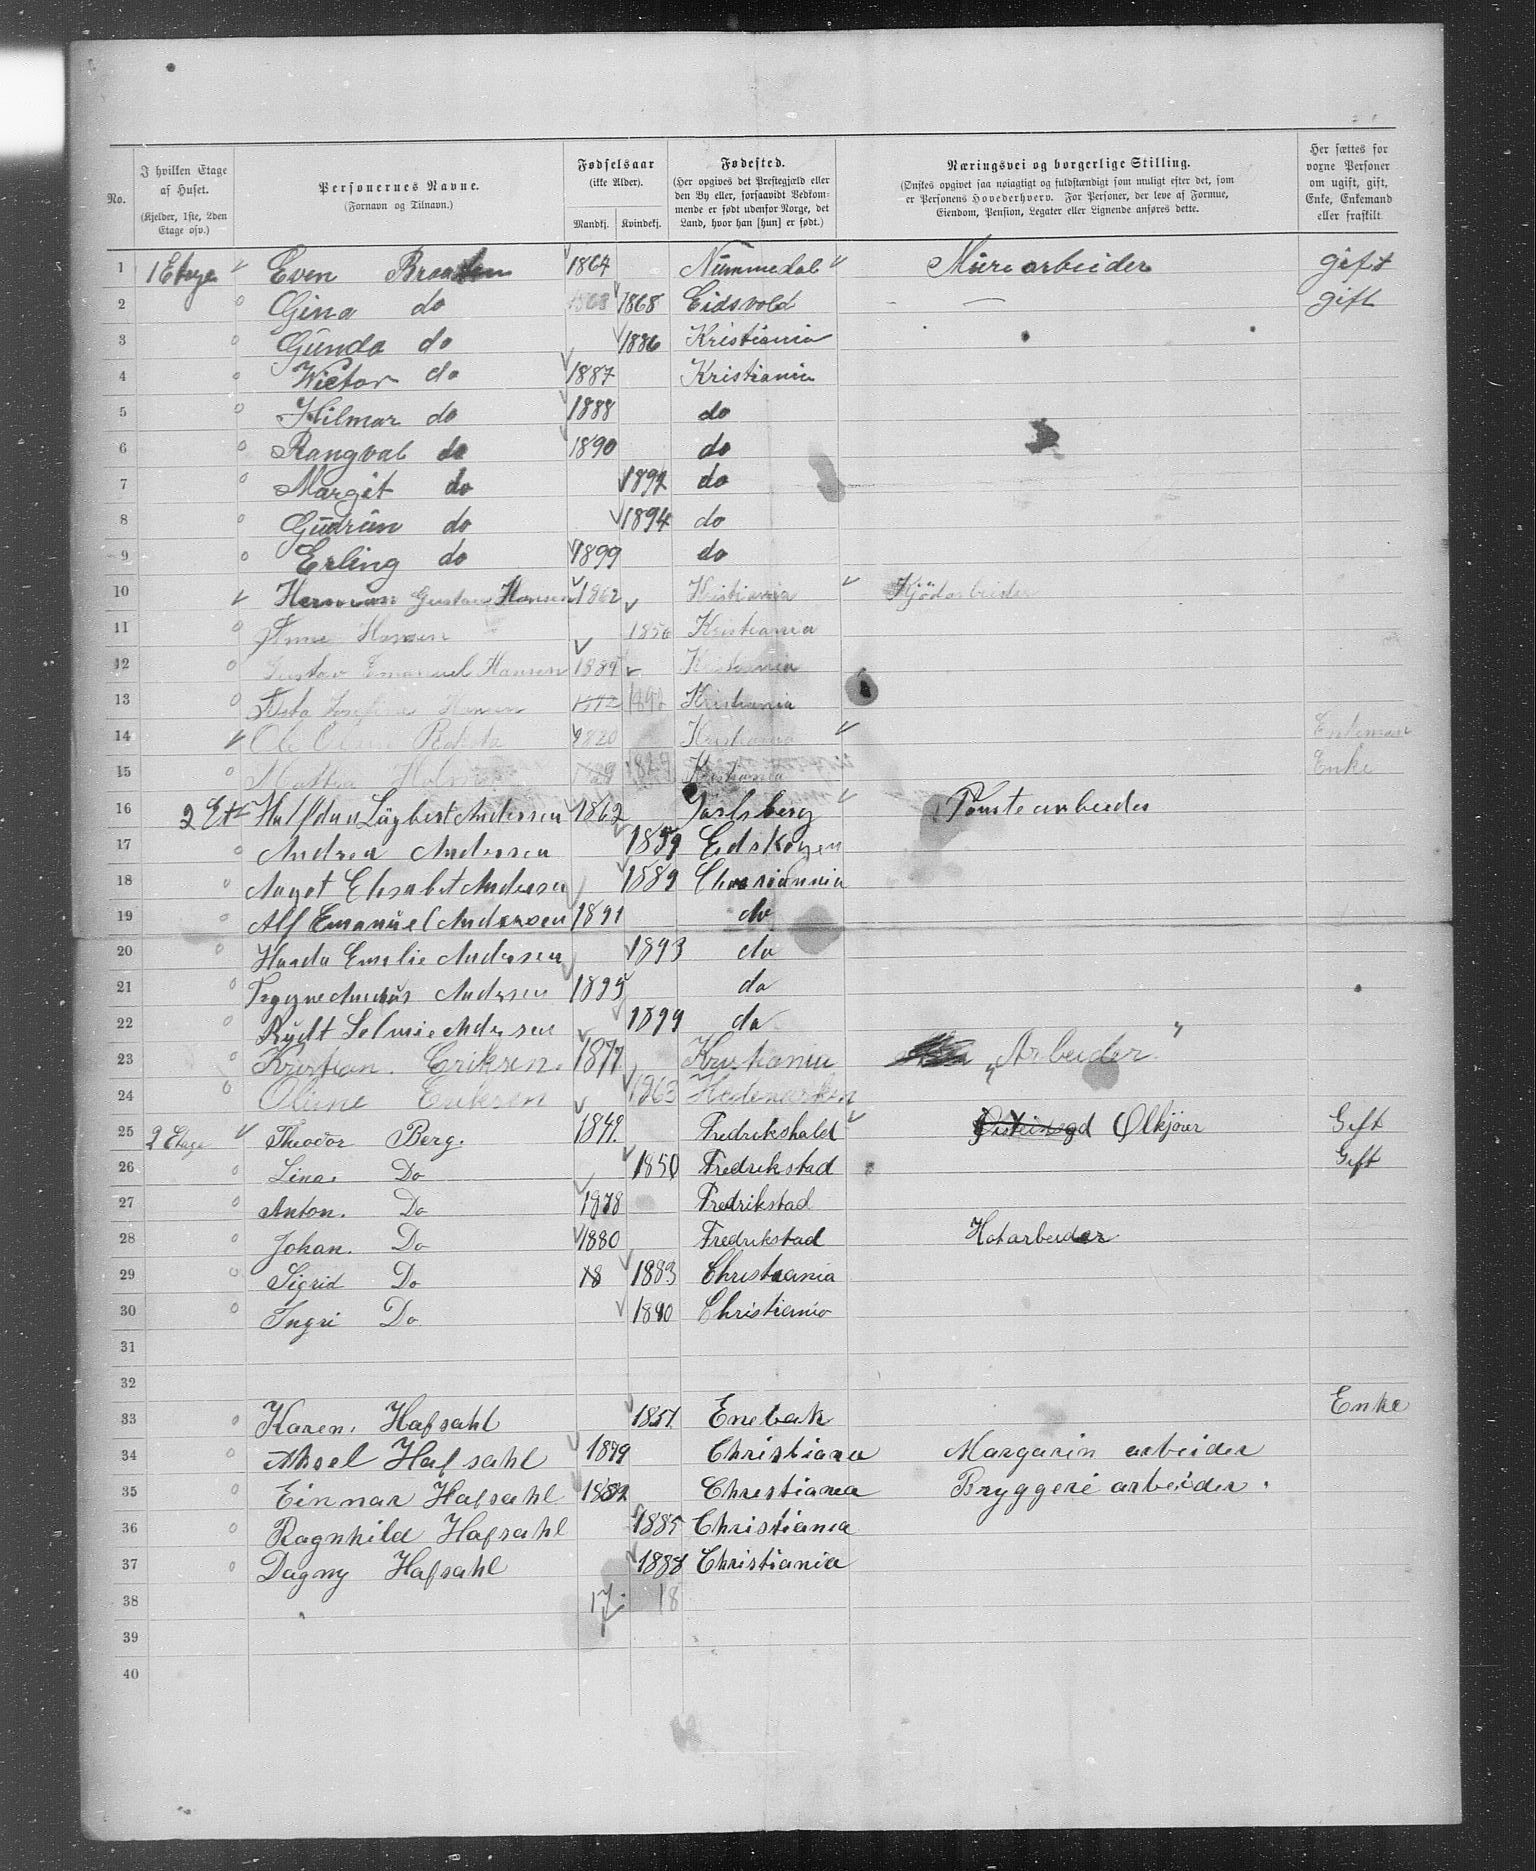 No. | I hvilken Etage af Huset. (Kjelder, 1ste, 2den Etage osv.) | Personernes Navne. (Fornavn og Tilnavn.) | Fødselsaar (ikke Alder). Mandkj. Kvindekj. | Fødested. (Her opgives det Prestegjæld eller den By eller, forsaavidt Vedkommende er født udenfor Norge, det Land, hvor han [hun] er født.) | Næringsvei og borgerlige Stilling. (Ønskes opgivet saa nøiagtigt og fuldstændigt som muligt efter det, som er Personens Hovederhverv. For Personer, der leve af Formue, Eiendom, Pension, Legater eller Lignende anføres dette.) | Her sættes for voxne Personer om ugift, gift, Enke, Enkemand eller fraskilt
1 1 Etage Even Braaten 1864 Nummedal Murearbeider gift
2 Gina do 1868 1868 Eidsvold — gift
3 Gunda do 1886 Kristiania
4 Wictor do 1887 Kristiania
5 Hilmar do 1888 do
6 Rangval do 1890 do
7 Margit do 1892 do
8 Gudrun do 1894 do
9 Erling do 1899 do
10 Herman Gustav Hansen 1862 Kristiania
11 Anna Hansen 1856 Kristiania
12 Gustav Emanuel Hansen 1889 Kristiania
13 Josefine Hansen Kristiania
14 Ole Olsen 1820 Kristiania Enkeman
15 Kristiania Enke
16 2 Et Halfdan Lugbert Andersen 1862 Jarlsberg Tomtearbeider
17 Andrea Andersen 1859 Eidskogen
18 Aagot Elisabet Andersen 1889
19 Alf Emanuel Andersen 1891 do
20 Emelie Andersen 1893 do
21 Andersen 1895 do
22 Andersen 1899 do
23 Kristian Eriksen 1877 Kristiania „Arbeider"
24 Oline Eriksen 1863 Hedemarken
25 2 Etage Theodor Berg. 1849. Fredrikshald Ølkjører Gift
26 Lina. Do 1850 Fredrikstad Gift
27 Anton. Do 1878 Fredrikstad
28 Johan. Do 1880 Fredrikstad Hatarbeider
29 Sigrid Do 18 1883 Christiania
30 Ingri Do 1890 Christiania
31
32
33 Karen. Hafsahl 1851. Enebak Enke
34 Aksel Hafsahl 1879 Christiana Margarin arbeider
35 Einnar Hafsahl 1882 Christiania Bryggeri arbeider.
36 Ragnhild Hafsahl 1885 Christiania
37 Dagny Hafsahl 1888 Christiania
38 17. 18
39
40